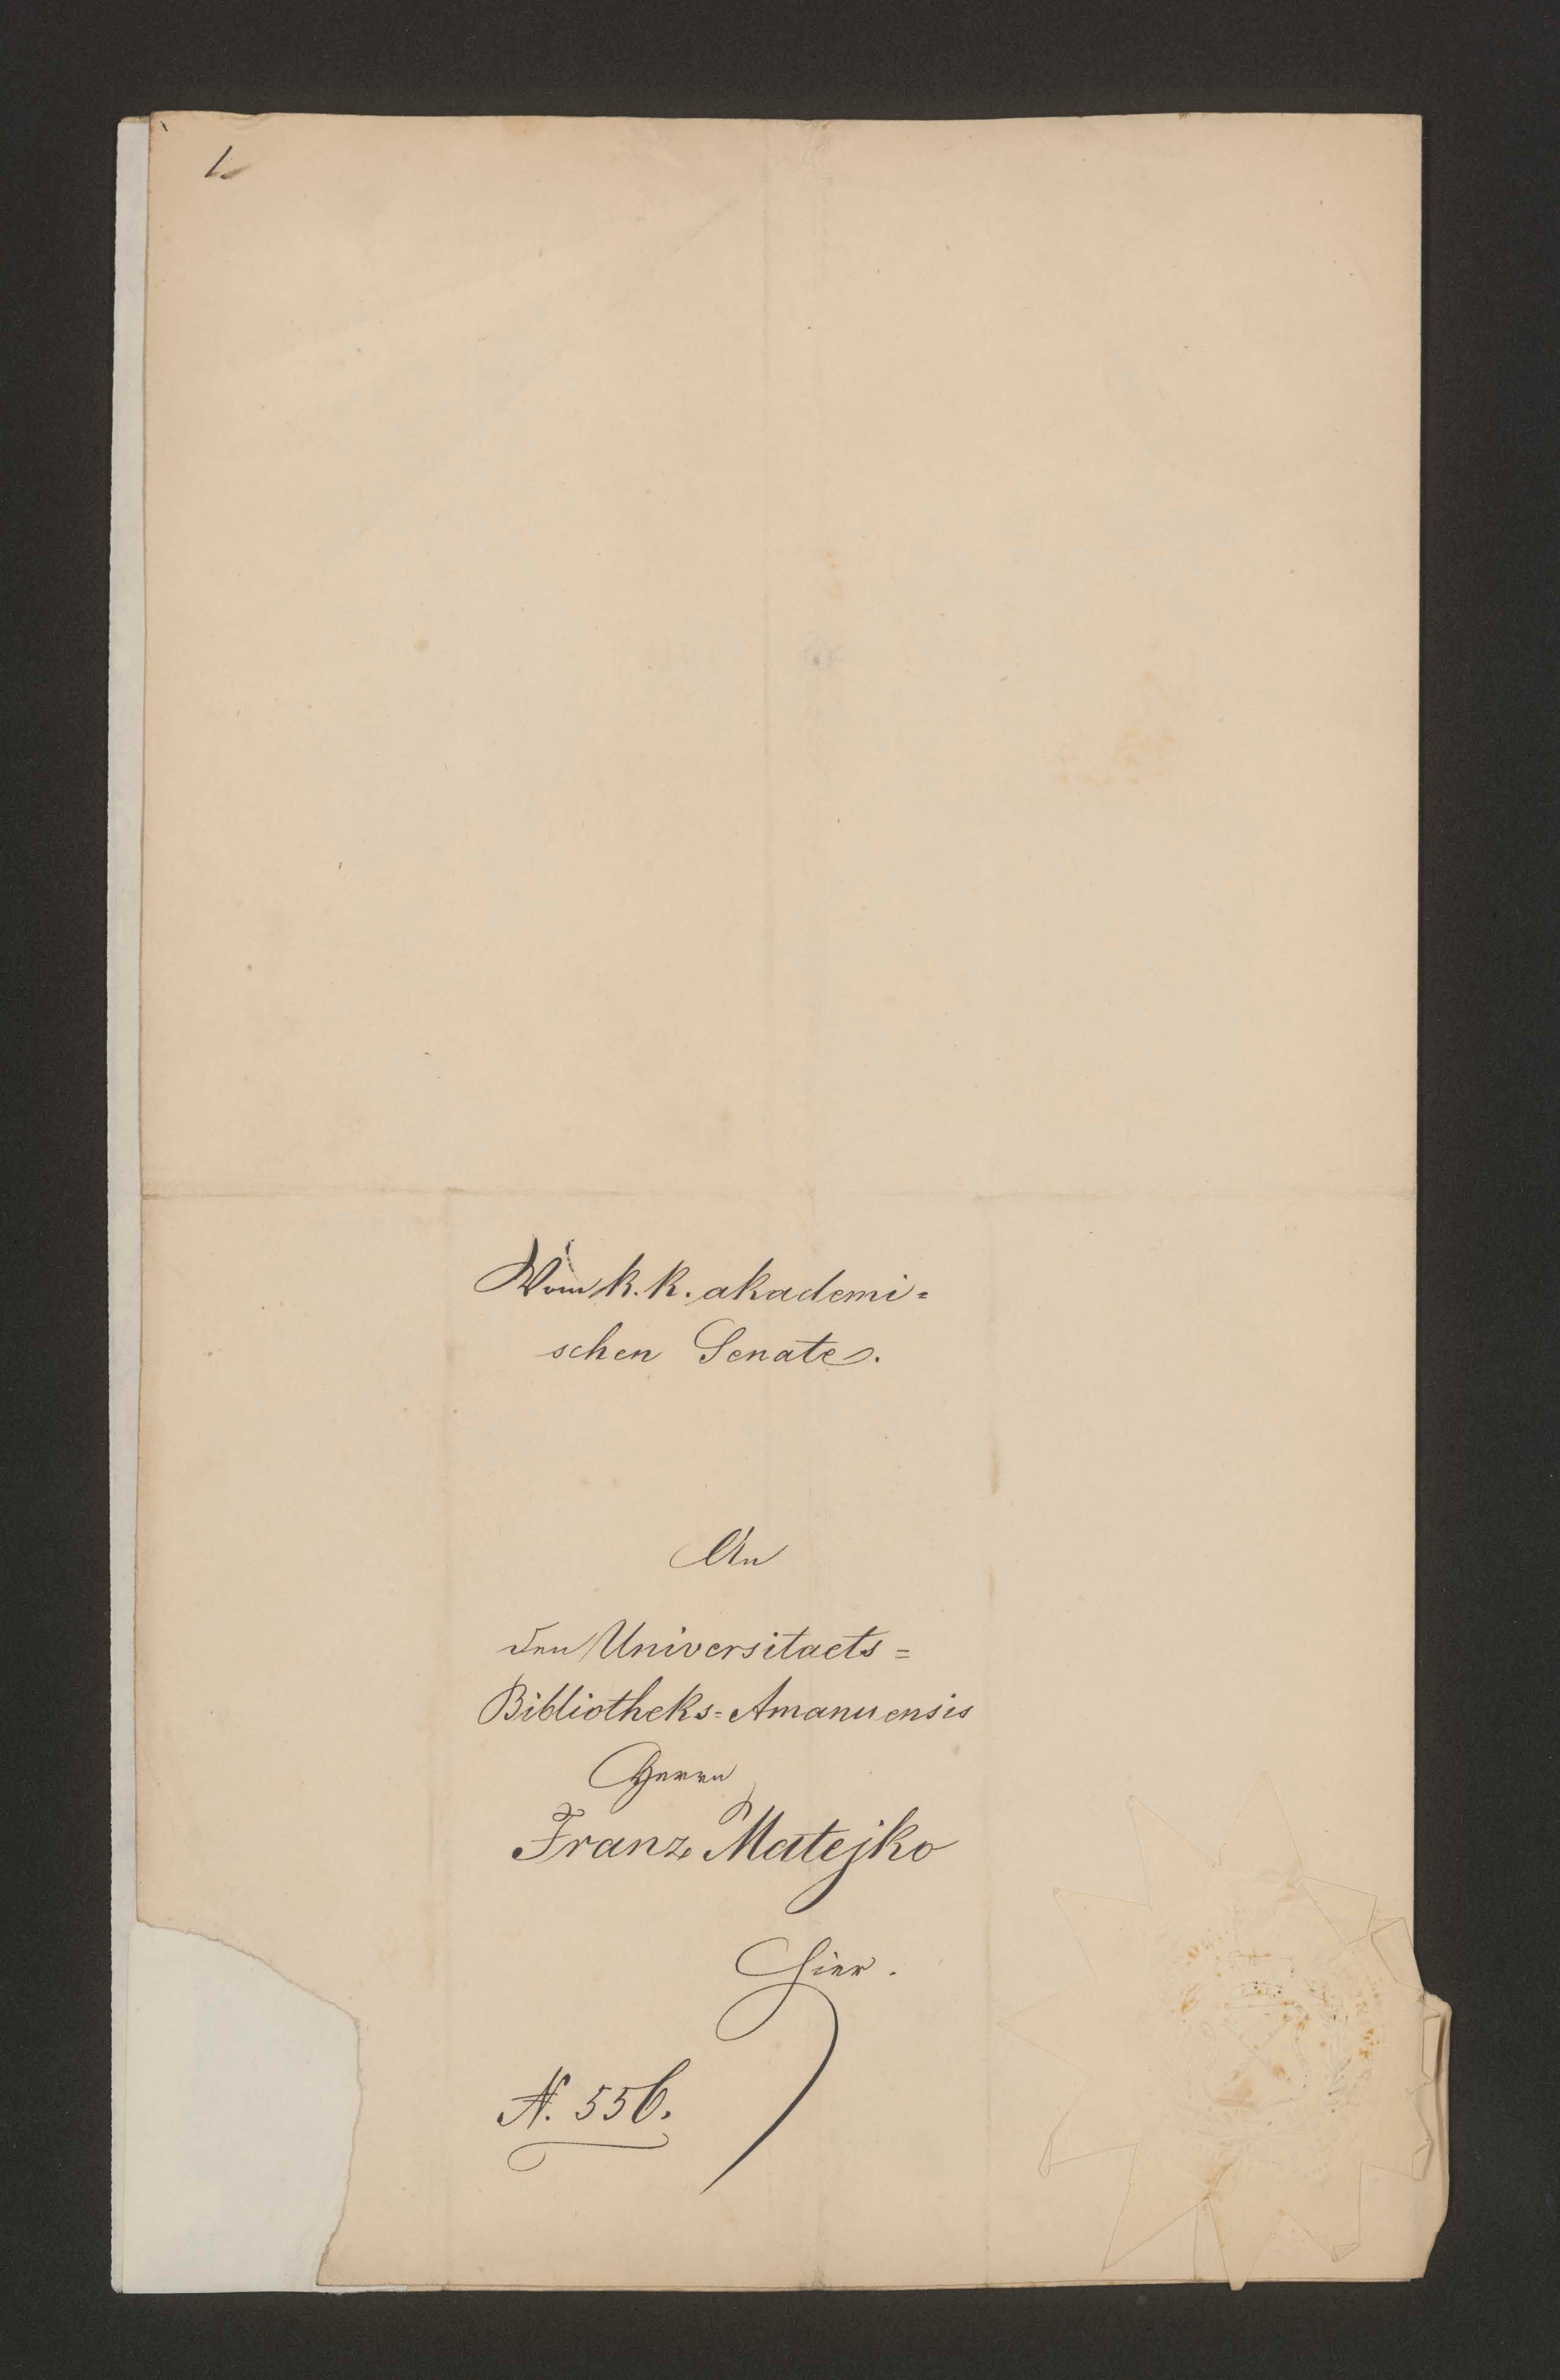 1.
Vom k. k. akademi=
schen Senate.
An
den Universitaets=
Bibliotheks=Amanuensis
Herrn
Franz Matejko
Hier.
N. 556.